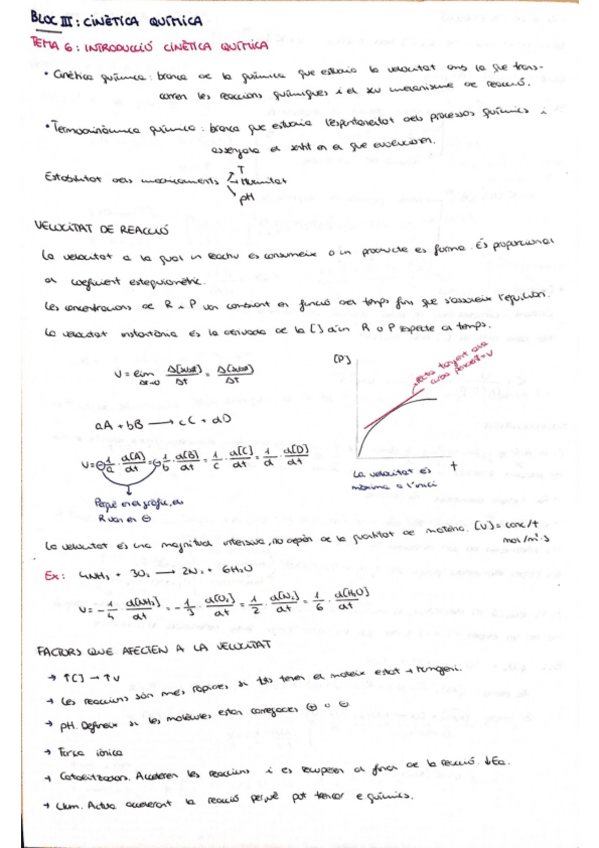 BLOC III: CINÈTICA QUÍMICA
TEMA 6: INTRODUCCIÓ CINÈTICA QUÍMICA
• Cinètica química: branca de la química que estudia la velocitat amb la que trans-
corren les reaccions químiques i el seu mecanisme de reacció.
• Termodinàmica química: branca que estudia l'espontaneïtat dels processos químics i
assenyala el sentit en el que evolucionen.
T
Estabilitat dels medicaments → Humitat
pH
VELOCITAT DE REACCIÓ
La velocitat a la qual un reactiu es consumeix o un producte es forma. És proporcional
al coeficient estequiomètric.
Les concentracions de R i P van canviant en funció del temps fins que s'assoleix l'equilibri.
La velocitat instantània és la derivada de la [] d'un R o P respecte al temps.
V = lim Δt→0 Δ[]/ΔT = Δ[]/ΔT
[P]
Recta tangent a la
t
La velocitat és
màxima a l'inici
aA + bB → cC + dD
V = ⊖ 1/a · d[A]/dt = ⊖ 1/b · d[B]/dt = 1/c · d[C]/dt = 1/d · d[D]/dt
Perquè en el gràfic, els
R van en ⊖
La velocitat és una magnitud intensiva, no depèn de la quantitat de matèria. [V] = conc/t
mol/m³·s
Ex: 4NH₃ + 3O₂ → 2N₂ + 6H₂O
V = -1/4 · d[NH₃]/dt = -1/3 · d[O₂]/dt = 1/2 · d[N₂]/dt = 1/6 · d[H₂O]/dt
FACTORS QUE AFECTEN A LA VELOCITAT
→ ↑[] → ↑v
→ Les reaccions són més ràpides si tots tenen el mateix estat → homogeni.
→ pH. Defineix si les molècules estan carregades ⊕ o ⊖
→ Força iònica
→ Catalitzadors. Acceleren les reaccions i es recuperen al final de la reacció. ↓Ea.
→ Llum. Actua accelerant la reacció perquè pot trencar e químics.